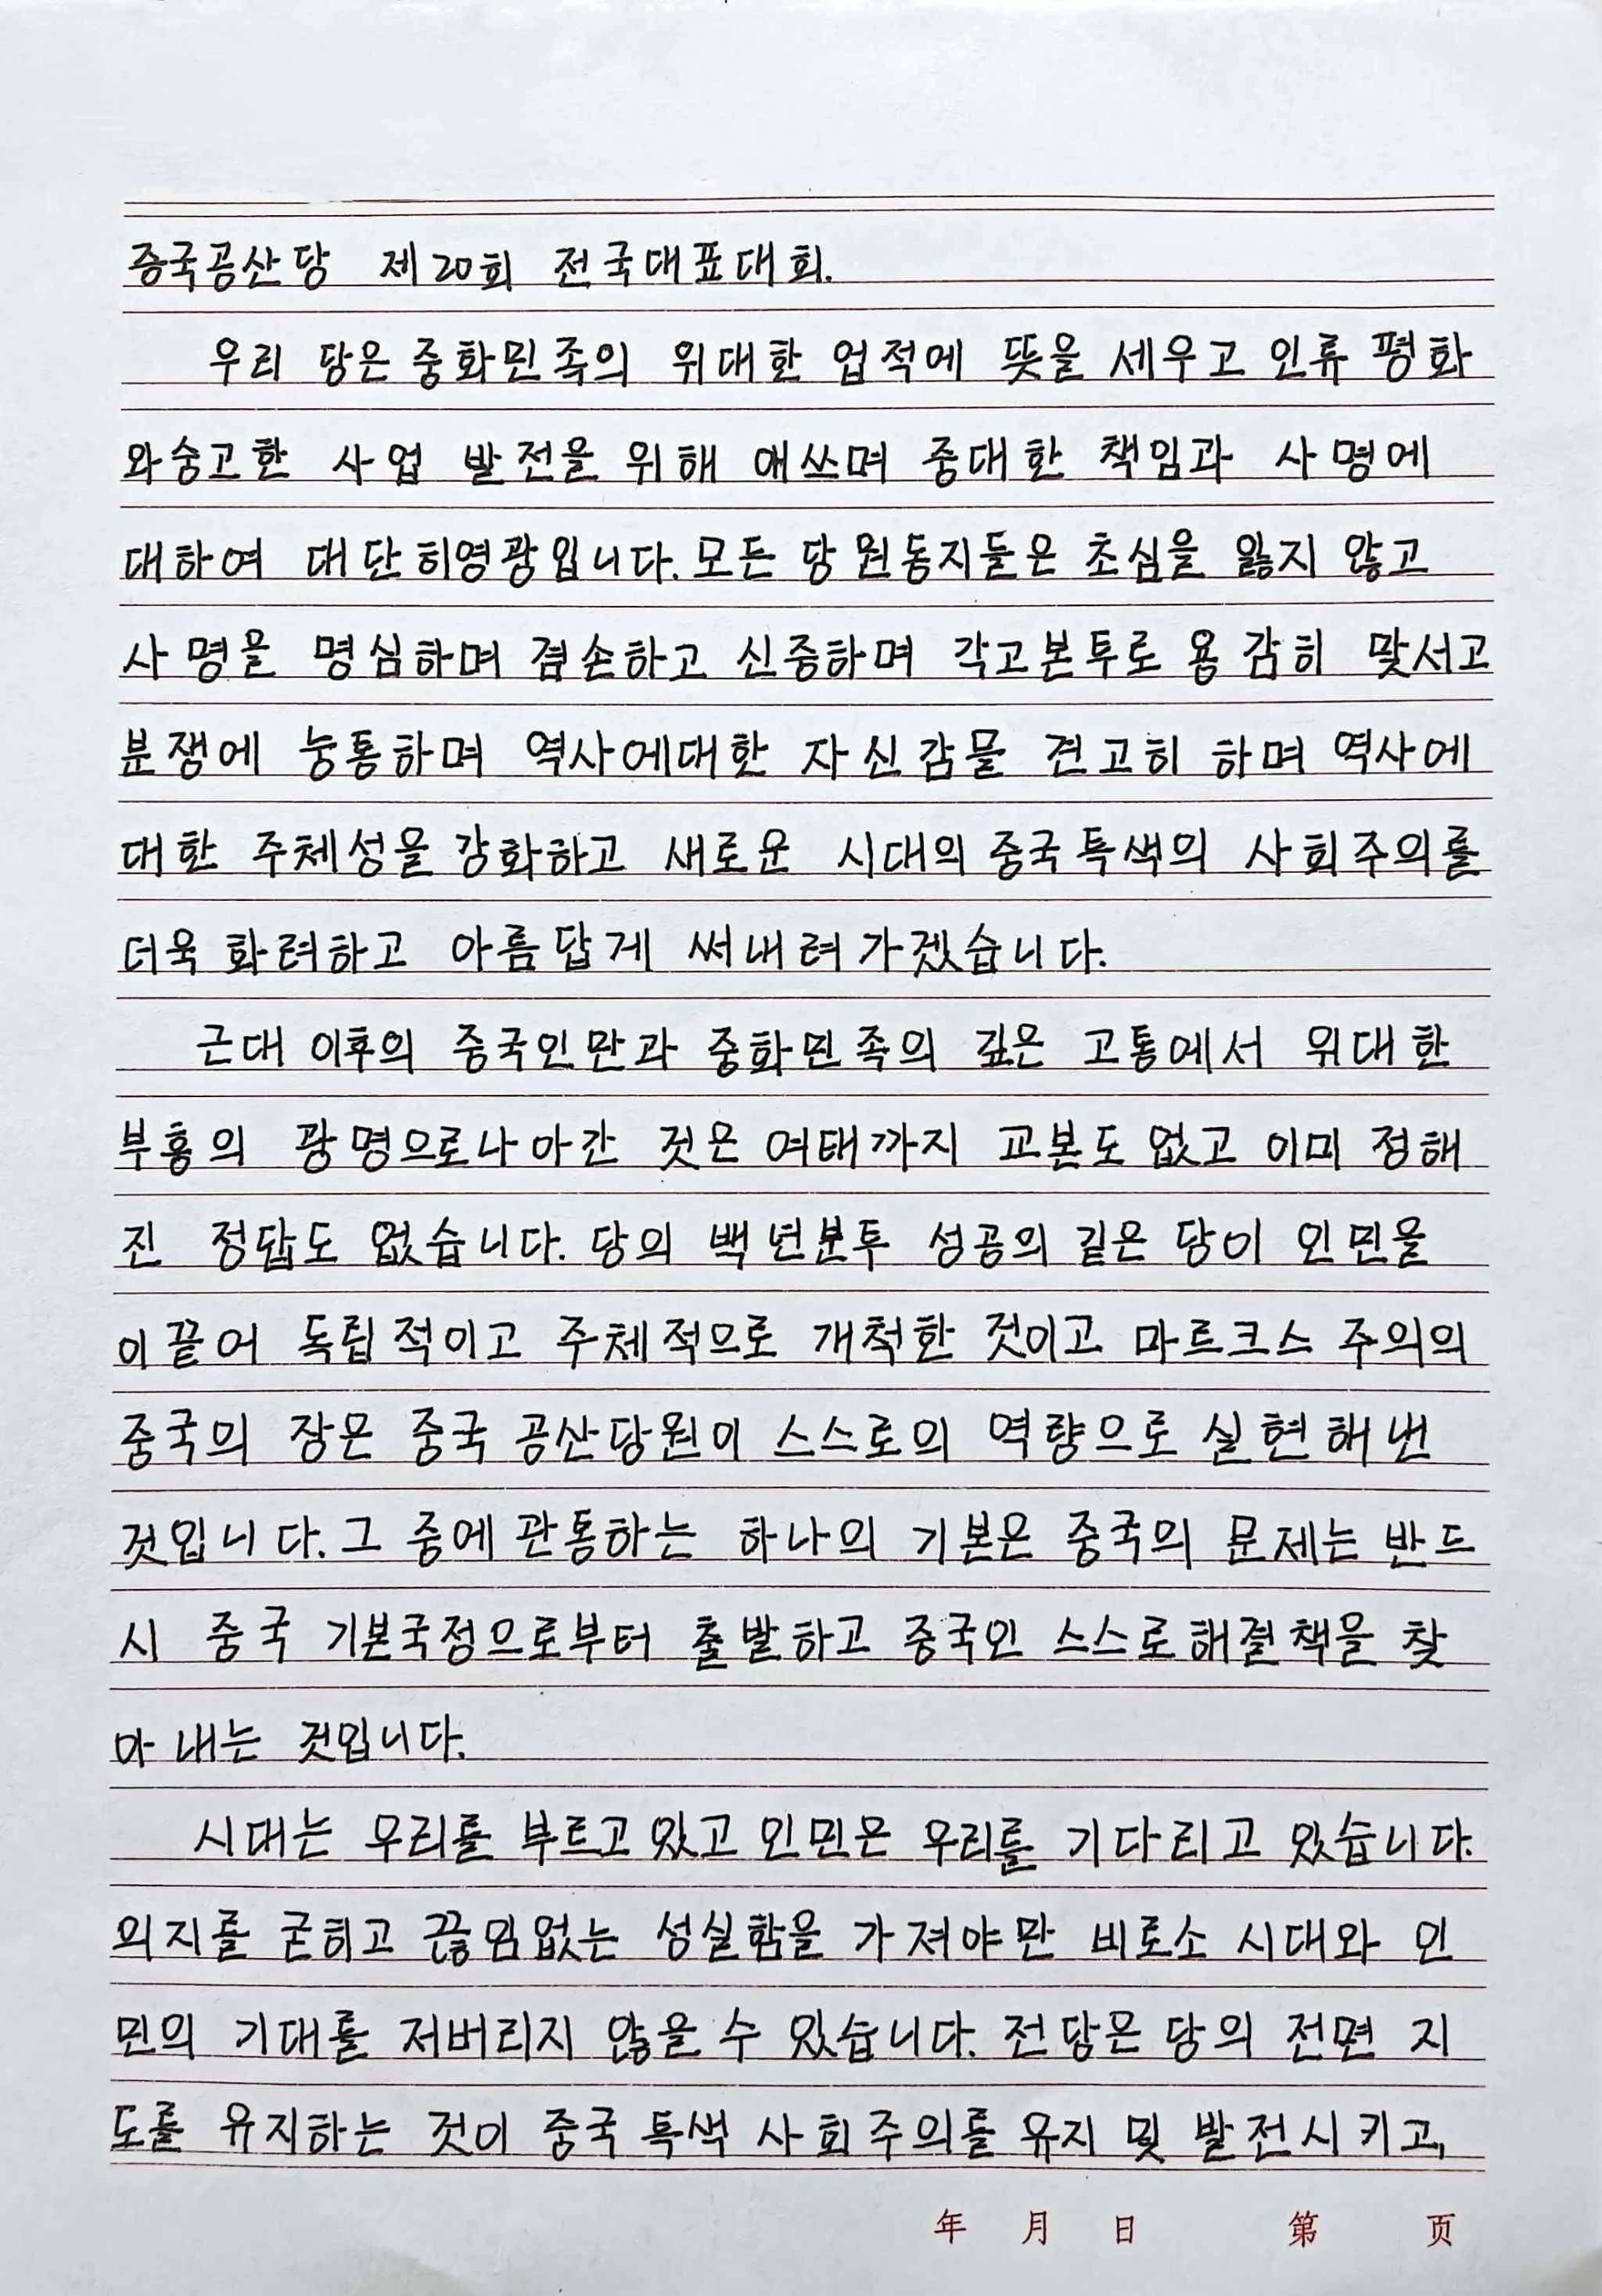 중국공산당 제20회 전국대표대회.
우리 당은 중화민족의 위대한 업적에 뜻을 세우고 인류 평화
와숭고한 사업 발전을 위해 애쓰며 중대한 책임과 사명에
대하여 대단히영광입니다. 모든 당 원동지들은 초심을 잃지 않고
사명을 명심하며 겸손하고 신중하며 각고본투로 용감히 맞서고
분쟁에 능통하며 역사에대한 자신감을 견고히 하며 역사에
대한 주체성을 강화하고 새로운 시대의 중국특색의 사회주의를
더욱 화려하고 아름답게 써내려가겠습니다.
근대 이후의 중국인만과 중화민족의 깊은 고통에서 위대한
부흥의 광명으로나아간 것은 여태까지 교본도 없고 이미 정해
진 정답도 없습니다. 당의 백년분투 성공의 길은 당이 인민을
이끌어 독립적이고 주체적으로 개척한 것이고 마르크스 주의의
중국의 장은 중국 공산당원이 스스로의 역량으로 실현해낸
것입니다. 그 중에 관통하는 하나의 기본은 중국의 문제는 반드
시 중국 기본국정으로부터 출발하고 중국인 스스로해결책을 찾
아 내는 것입니다.
시대는 우리를 부르고 있고 인민은 우리를 기다리고 있습니다.
의지를 굳히고 끊임없는 성실함을 가져야만 비로소 시대와 인
민의 기대를 저버리지 않을 수 있습니다. 전당은 당의 전면 지
도를 유지하는 것이 중국 특색 사회주의를 유지 및 발전시키고,
年 月 日 第 页